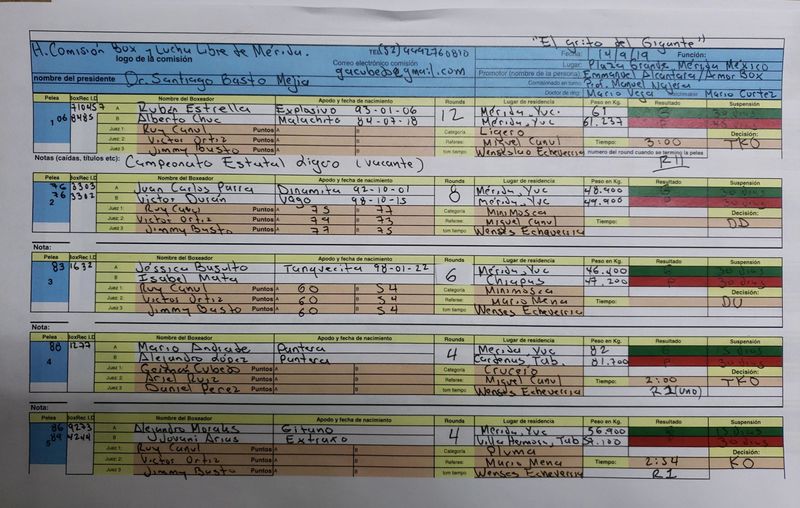 "El grito del Gigante"
H. Comisión Box y Lucha Libre de Mérida.
logo de la comisión
TEL(52) 4492760810
Correo electrónico comisión
gacubedo@gmail.com
nombre del presidente Dr. Santiago Basto Mejia
Fecha: 14/9/19 Función:
Lugar: Plaza Grande Merida México
Promotor (nombre de la persona) Emmanuel Alcantara/Armor Box
Comisionado en turno: Prof. Manuel Najera
Doctor de ring: Mario Vega Mario Cortez
Pelea BoxRec I.D Nombre del Boxeador Apodo y fecha de nacimiento Rounds Lugar de residencia Peso en Kg. Resultado Suspensión
710457 A Rubén Estrella Explosivo 93-01-06 12 Mérida, Yuc. 61 G 30 dias
1 06 8485 B Alberto Chuc Malachito 84-07-18 Mérida, Yuc 61.237 P 45 dias
Juez 1: Ruy Canul Puntos A B Categoría Ligero Decisión:
Juez 2: Victor Ortiz Puntos A B Referee: Miguel Canul Tiempo: 3:00 TKO
Juez 3 Jimmy Busto Puntos A B tom tiempo Wenseslao Echeverria numero del round cuando se termino la pelea
Notas (caídas, títulos etc): Campeonato Estatal ligero (vacante) R11
Pelea BoxRec I.D Nombre del Boxeador Apodo y fecha de nacimiento Rounds Lugar de residencia Peso en Kg. Resultado Suspensión
76 3303 A Juan Carlos Parra Dinamita 92-10-01 8 Mérida, Yuc 48.900 30 dias
76 3302 B Victor Durán Vago 98-10-15 Mérida, Yuc 49.900 30 dias
2 Juez 1: Ruy Canul Puntos A 75 B 77 Categoría Minimosca Decisión:
Juez 2: Victor Ortiz Puntos A 79 B 73 Referee: Miguel Canul Tiempo: DD
Juez 3 Jimmy Busto Puntos A 77 B 75 tom tiempo Wenses Echeverria
Nota:
Pelea BoxRec I.D Nombre del Boxeador Apodo y fecha de nacimiento Rounds Lugar de residencia Peso en Kg. Resultado Suspensión
83 1632 A Jéssica Basulto Tanquecita 98-01-22 6 Mérida, Yuc 46.400 G 30 dias
3 B Isabel Mata Chiapas 47.200 P 30 dias
Juez 1: Ruy Canul Puntos A 60 B 54 Categoría Minimosca Decisión:
Juez 2: Victor Ortiz Puntos A 60 B 54 Referee: Mario Mena Tiempo: DU
Juez 3 Jimmy Busto Puntos A 60 B 54 tom tiempo Wenses Echeverria
Nota:
Pelea BoxRec I.D Nombre del Boxeador Apodo y fecha de nacimiento Rounds Lugar de residencia Peso en Kg. Resultado Suspensión
88 1277 A Mario Andrade Pantera 4 Mérida, Yuc 82 G 15 dias
4 B Alejandro López Pantera Cardenas Tab. 81.700 P 30 dias
Juez 1: Cubedo Puntos A B Categoría Crucero Decisión:
Juez 2: Ariel Ruiz Puntos A B Referee: Miguel Canul Tiempo: 2:00 TKO
Juez 3 Daniel Perez Puntos A B tom tiempo Wenses Echeverria R1(uno)
Nota:
Pelea BoxRec I.D Nombre del Boxeador Apodo y fecha de nacimiento Rounds Lugar de residencia Peso en Kg. Resultado Suspensión
86 9273 A Alejandro Morales Gitano 4 Mérida, Yuc 56.900 G 15 dias
89 4244 B Jovani Arias Extraño Villa Hermosa, Tab 57.100 P 30 dias
5 Juez 1: Ruy Canul Puntos A B Categoría Pluma Decisión:
Juez 2: Victor Ortiz Puntos A B Referee: Mario Mena Tiempo: 2:54 KO
Juez 3 Jimmy Busto Puntos A B tom tiempo Wenses Echeverria R1